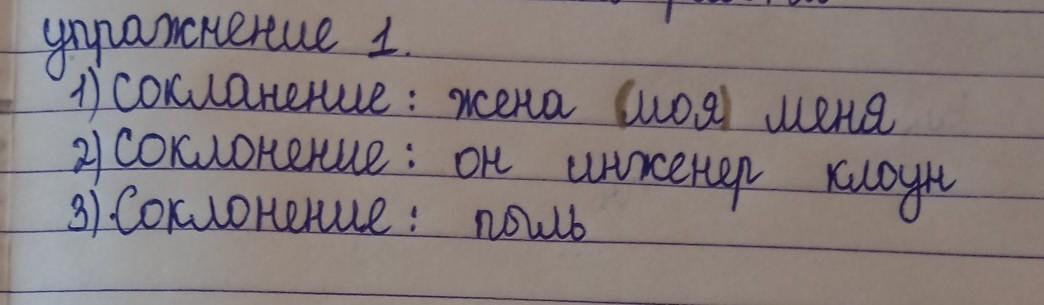 упражнение 1.
1) сокланение: жена (моя) меня
2) соклонение: он инженер клоун
3) Соклонение: пыль